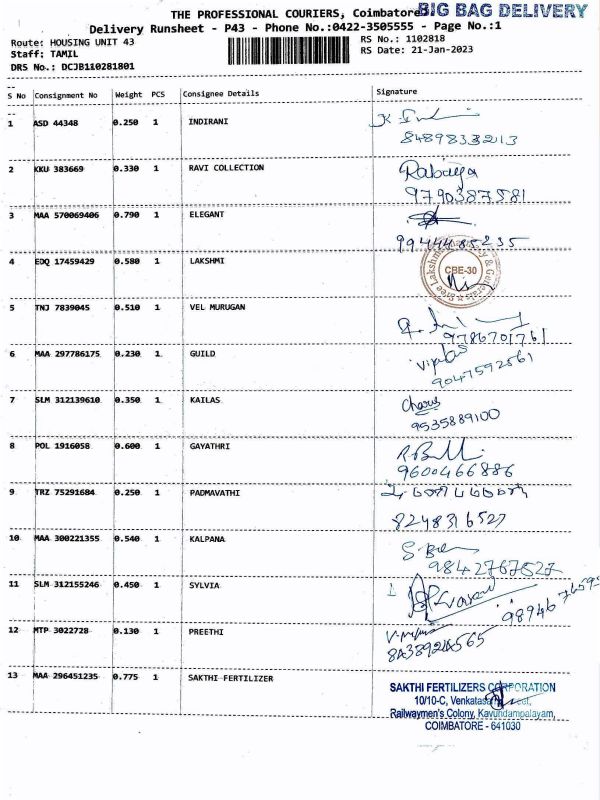 THE PROFESSIONAL COURIERS, Coimbatore BIG BAG DELIVERY
Delivery Runsheet - P43 - Phone No.:0422-3505555 - Page No.:1
Route: HOUSING UNIT 43 RS No.: 1102818
Staff: TAMIL RS Date: 21-Jan-2023
DRS No.: DCJB110281801
S No Consignment No Weight PCS Consignee Details Signature
1 ASD 44348 0.250 1 INDIRANI
8489833213
2 KKU 383669 0.330 1 RAVI COLLECTION Rabaya
9790387581
3 MAA 570069406 0.790 1 ELEGANT
9944485235
4 EDQ 17459429 0.580 1 LAKSHMI CBE-30
5 TNJ 7839045 0.510 1 VEL MURUGAN
9786701761
6 MAA 297786175 0.230 1 GUILD
9047592561
7 SLM 312139610 0.350 1 KAILAS Charus
9535889100
8 POL 1916058 0.600 1 GAYATHRI
9600466886
9 TRZ 75291684 0.250 1 PADMAVATHI
8248316527
10 MAA 300221355 0.540 1 KALPANA
9842767527
11 SLM 312155246 0.450 1 SYLVIA
12 MTP 3022728 0.130 1 PREETHI
13 MAA 296451235 0.775 1 SAKTHI FERTILIZER
SAKTHI FERTILIZERS CORPORATION
10/10-C,
Railwaymen's Colony, Kavundampalayam,
COIMBATORE - 641030